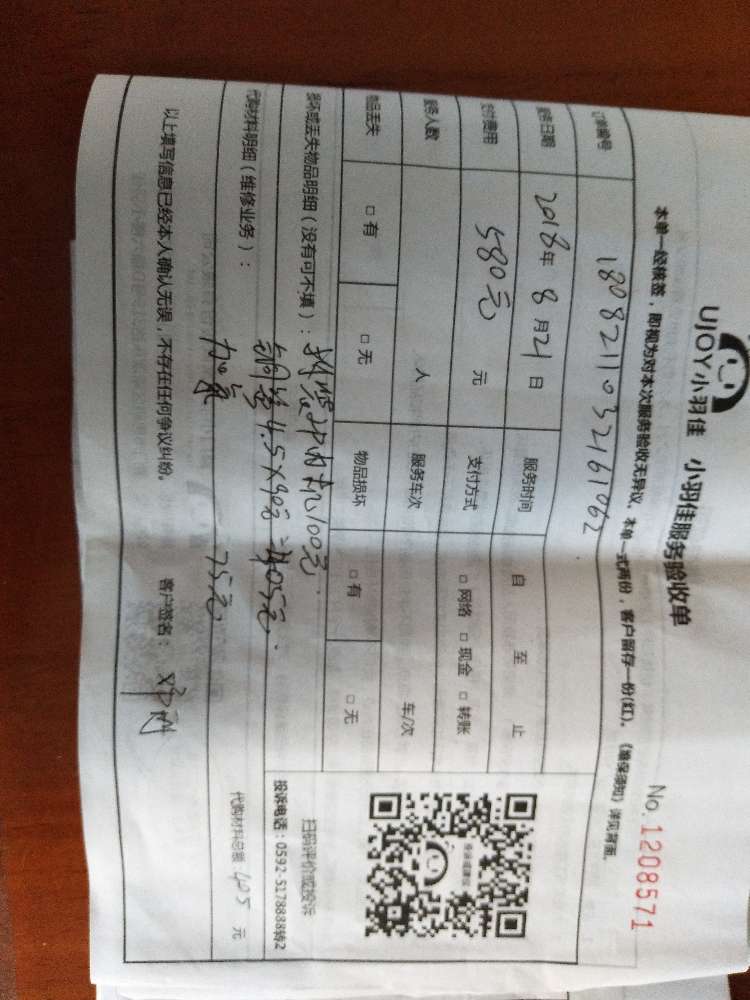 UJOY小羽佳 小羽佳服务验收单
No.1208571
本单一经核签，即视为对本次服务验收无异议。本单一式两份，客户留存一份(红)。《维保须知》详见背面。
订单编号 1808211032161062
服务日期 2018年 8月21日 服务时间 自 至 止
支付费用 580元 元 支付方式 □网络 □现金 □转账
服务人数 人 服务车次 车/次
物品丢失 □有 □无 物品损坏 □有 □无
扫码评价或投诉
投诉电话：0592-5178888转2
损坏或丢失物品明细（没有可不填）：
100元
代购材料明细（维修业务）：铜管4.5×90元=405元.
75元
代购材料总额 405 元
以上填写信息已经本人确认无误，不存在任何争议纠纷。 客户签名：